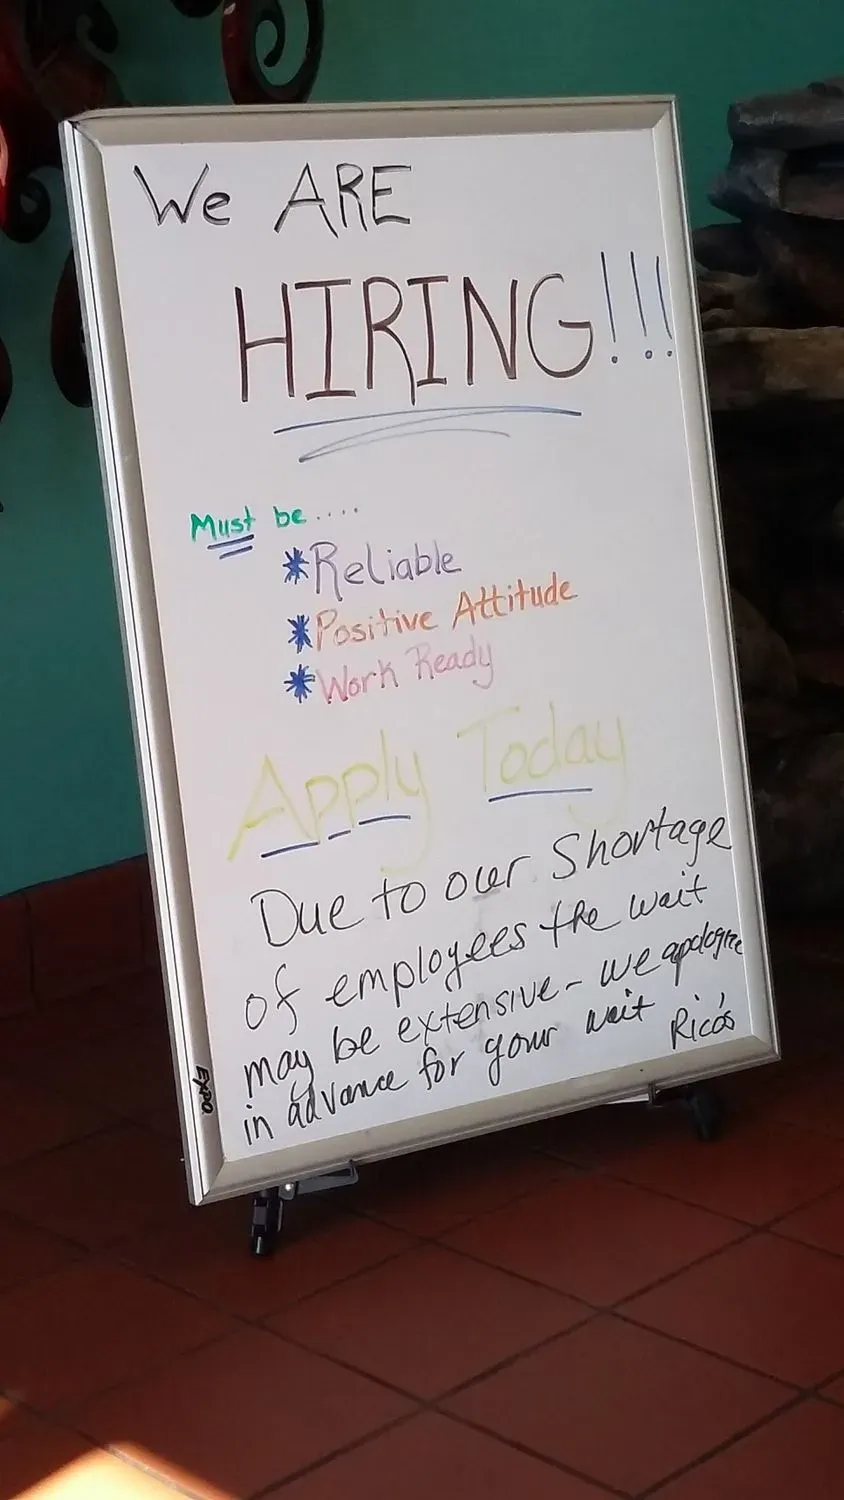 We ARE
HIRING!!!
Must be....
*Reliable
*Positive Attitude
*Work Ready
Apply Today
Due to our Shortage
of employees the wait
may be extensive - we apologize
in advance for your wait Rico's
EXPO